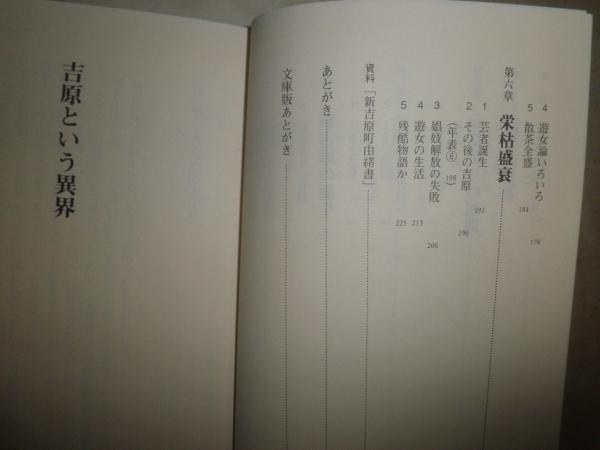 4 遊女論いろいろ 178
5 散茶全盛 184
第六章 栄枯盛衰
1 芸者誕生 192
2 その後の吉原 196
（年表⑥ 198）
3 娼妓解放の失敗 206
4 遊女の生活 215
5 残酷物語か 225
資料「新吉原町由緒書」
あとがき
文庫版あとがき
吉原という異界